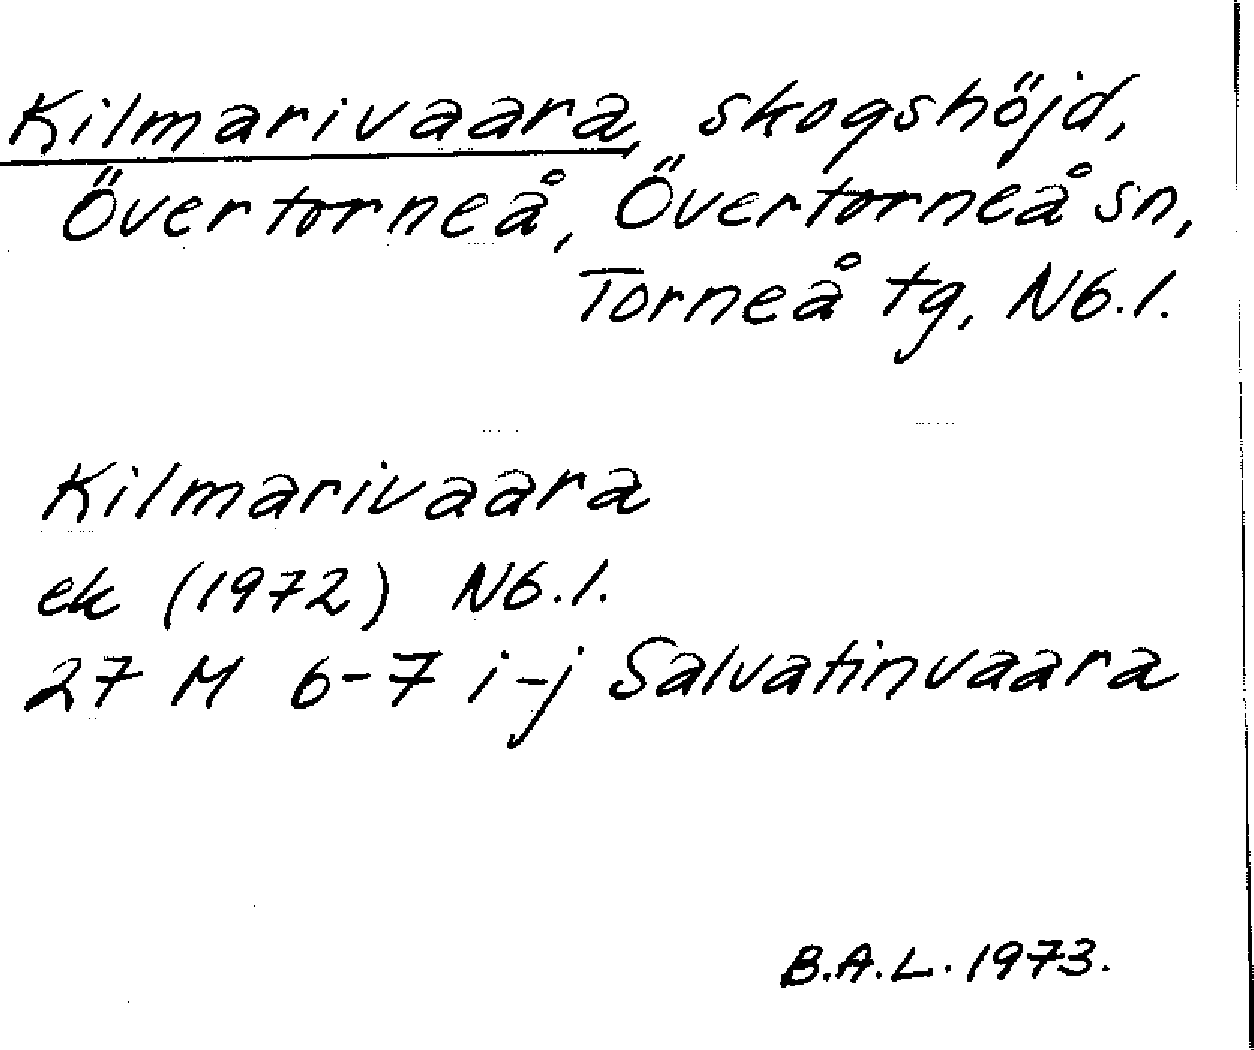 Kilmarivaara, skogshöjd,
Övertorneå, Övertorneå sn,
Torneå tg, N6.1.
Kilmarivaara
ek (1972) N6.1.
27 M 6-7 i-j Salvatinvaara
B.A.L. 1973.